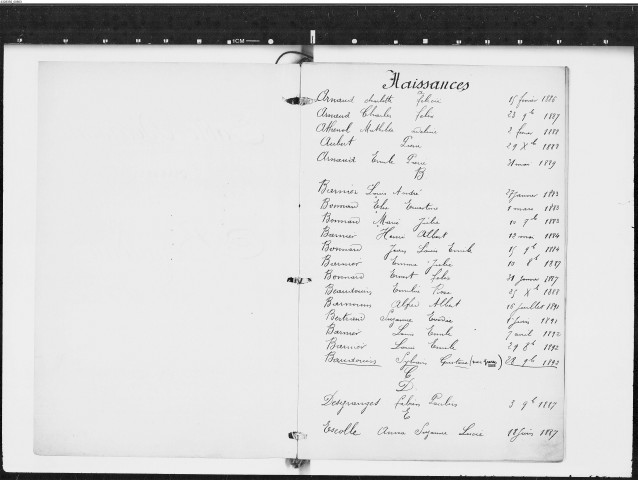 Naissances
Arnaud Félicie 15 février 1886
Arnaud Charles Jules 23 9b 1887
Athenol Mathilde 2 1888
Aubert Pierre 29 Xb 1888
Arnaud Emile Pierre 31 mai 1889
B
Barnier Louis André 27 janvier 1883
Bonnard Elie Ernestine 8 mars 1883
Bonnard Marie Julie 10 7b 1883
Barnier Henri Albert 12 mai 1884
Bonnard Jean Louis Emile 15 9b 1884
Barnier Emma Julie 10 8b 1887
Bonnard Ernest Jules 31 janvier 1887
Beaudouin Emilie Rosa 25 Xb 1888
Alfred Albert 16 juillet 1891
Bertrand Suzanne 1891
Barnier Louis Emile 7 avril 1892
Barnier Louis Emile 29 8b 1892
Baudouin Sylvain Gustave 22 9b 1892
C
D
Desgranges Fabien Paulin 3 9b 1887
E
Escolle Anna Suzanne Lucie 18 juin 1887